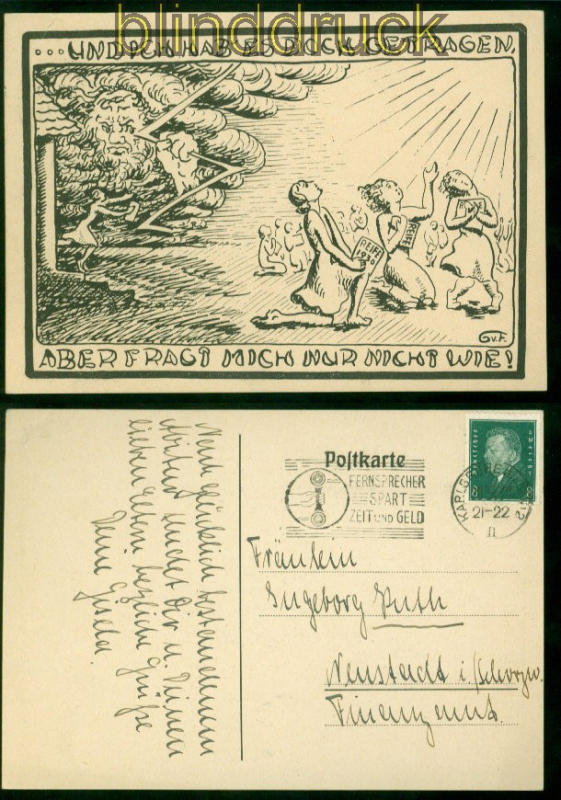 blinddruck
... UND ICH HAB ES DOCH GETRAGEN,
REIFE
1930
G.v.F.
ABER FRAGT MICH NUR NICHT WIE!
Postkarte
FERNSPRECHER
SPART
ZEIT UND GELD
KARLSRUHE
21-22
Fräulein
Ingeborg Puth
Neustadt i./Schwarzw.
Finanzamt.
Nach glücklich bestandenem
Abitur sendet Dir u. Deinen
lieben Eltern herzliche Grüße
Deine Gisela.